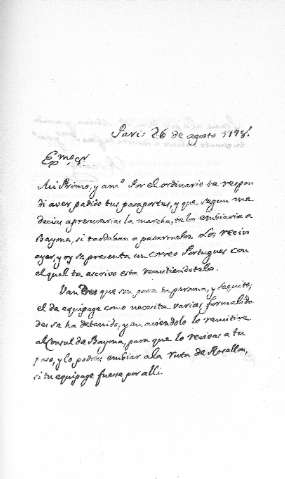 Paris 26 de agosto 1798.
Exmo. Sr.
Mi Primo, y amo. Por el ordinario te respon
di aver pedido tus pasaportes, y que segun me
decias apresurarias la marcha, te los embiaria a
Bayona, si tardaban a pasarmelos. Los recivi
ayer, y oy se presenta un correo Portugues con
el qual te escrivo esta remitiendotelo.
Van tres que son para tu persona, y sequito;
el de equipage como necesita varias formalida
des se ha detenido, y en aviendolo lo remitire
al Consul de Bayona, para que lo recivas a tu
paso, y lo podras embiar a la ruta de Rosellon,
si tu equipage fuese por alli.